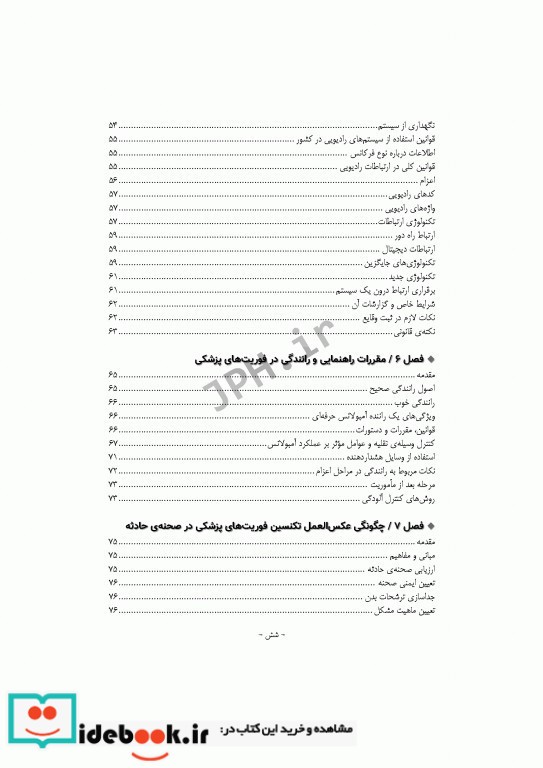 نگهداری از سیستم ........ ۵۴
قوانین استفاده از سیستم‌های رادیویی در کشور ........ ۵۵
اطلاعات درباره نوع فرکانس ........ ۵۵
قوانین کلی در ارتباطات رادیویی ........ ۵۵
اعزام ........ ۵۶
کدهای رادیویی ........ ۵۷
واژه‌های رادیویی ........ ۵۷
تکنولوژی ارتباطات ........ ۵۷
ارتباط راه دور ........ ۵۹
ارتباطات دیجیتال ........ ۵۹
تکنولوژی‌های جایگزین ........ ۵۹
تکنولوژی جدید ........ ۶۱
برقراری ارتباط درون یک سیستم ........ ۶۱
شرایط خاص و گزارشات آن ........ ۶۲
نکات لازم در ثبت وقایع ........ ۶۲
نکته‌ی قانونی ........ ۶۳
◆ فصل ۶ / مقررات راهنمایی و رانندگی در فوریت‌های پزشکی
مقدمه ........ ۶۵
اصول رانندگی صحیح ........ ۶۵
رانندگی خوب ........ ۶۶
ویژگی‌های یک راننده آمبولانس حرفه‌ای ........ ۶۶
قوانین، مقررات و دستورات ........ ۶۶
کنترل وسیله‌ی نقلیه و عوامل مؤثر بر عملکرد آمبولانس ........ ۶۷
استفاده از وسایل هشداردهنده ........ ۷۱
نکات مربوط به رانندگی در مراحل اعزام ........ ۷۲
مرحله بعد از مأموریت ........ ۷۳
روش‌های کنترل آلودگی ........ ۷۳
◆ فصل ۷ / چگونگی عکس‌العمل تکنسین فوریت‌های پزشکی در صحنه‌ی حادثه
مقدمه ........ ۷۵
مبانی و مفاهیم ........ ۷۵
ارزیابی صحنه‌ی حادثه ........ ۷۵
تعیین ایمنی صحنه ........ ۷۶
جداسازی ترشحات بدن ........ ۷۶
تعیین ماهیت مشکل ........ ۷۶
~ شش ~
JPH.ir
مشاهده و خرید این کتاب در:
idebook.ir